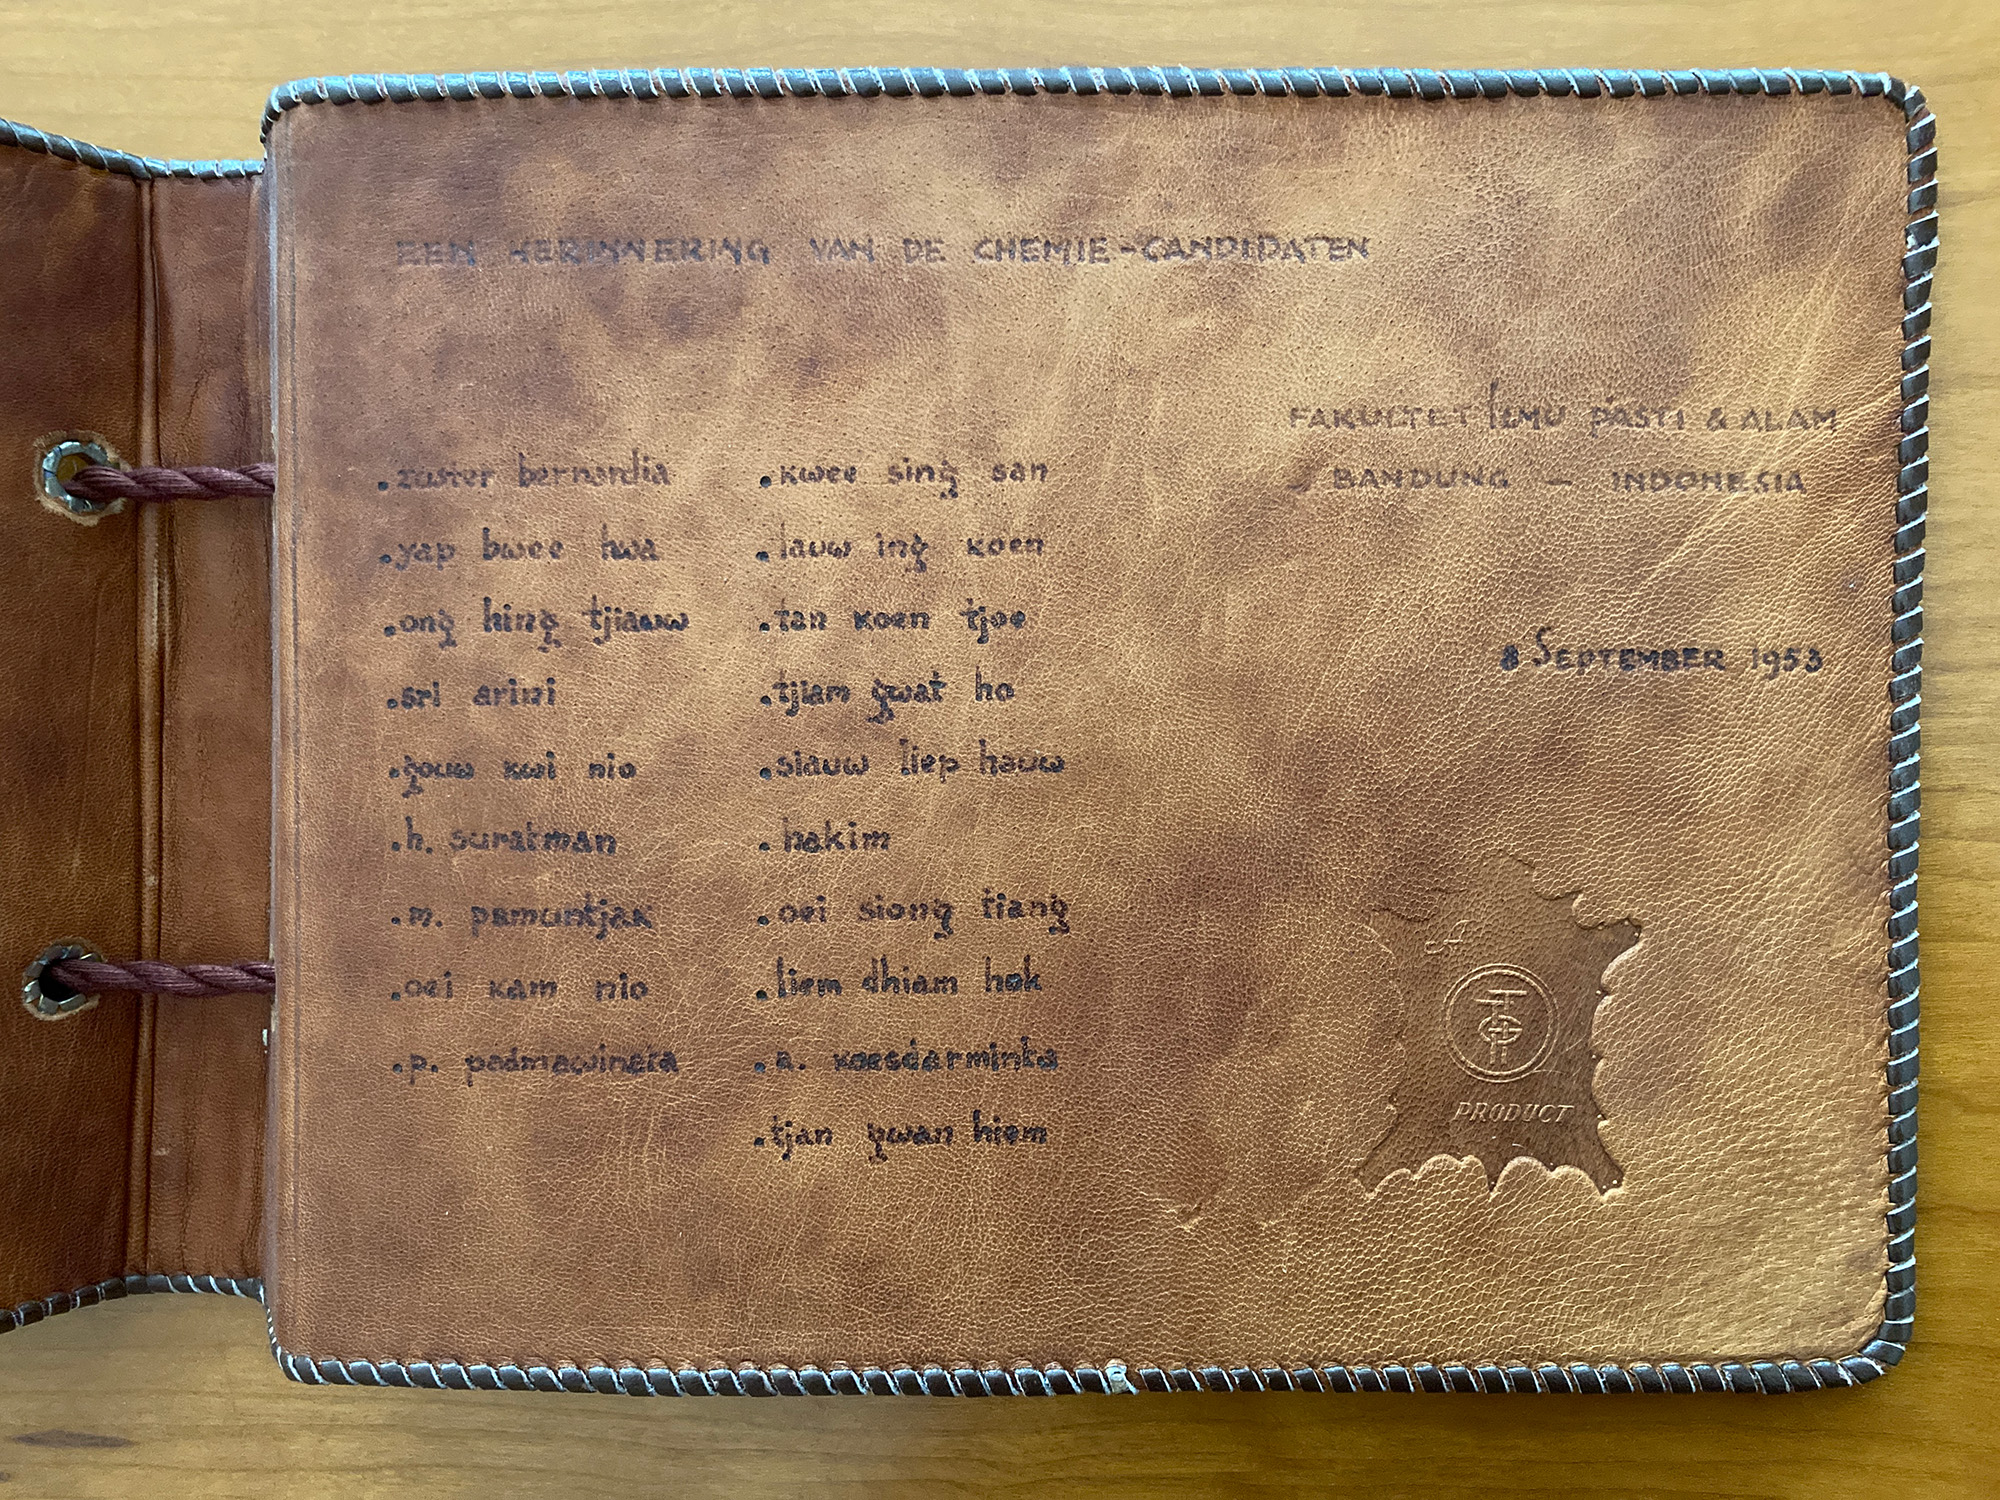 EEN HERINNERING VAN DE CHEMIE-CANDIDATEN
FAKULTET ILMU PASTI & ALAM
BANDUNG — INDONESIA
8 SEPTEMBER 1953
.zuster bernardia
.yap bwee hwa
.ong hing tjiauw
.sri arini
.gouw kwi nio
.h. suratman
.m. pamuntjak
.oei kam nio
.p. padmawinata
.kwee sing san
.lauw ing koen
.tan koen tjoe
.tjiam gwat ho
.siauw liep hauw
.hakim
.oei siong tiang
.liem dhiam hok
.a. koesdarminta
.tjan gwan hiem
A
PRODUCT